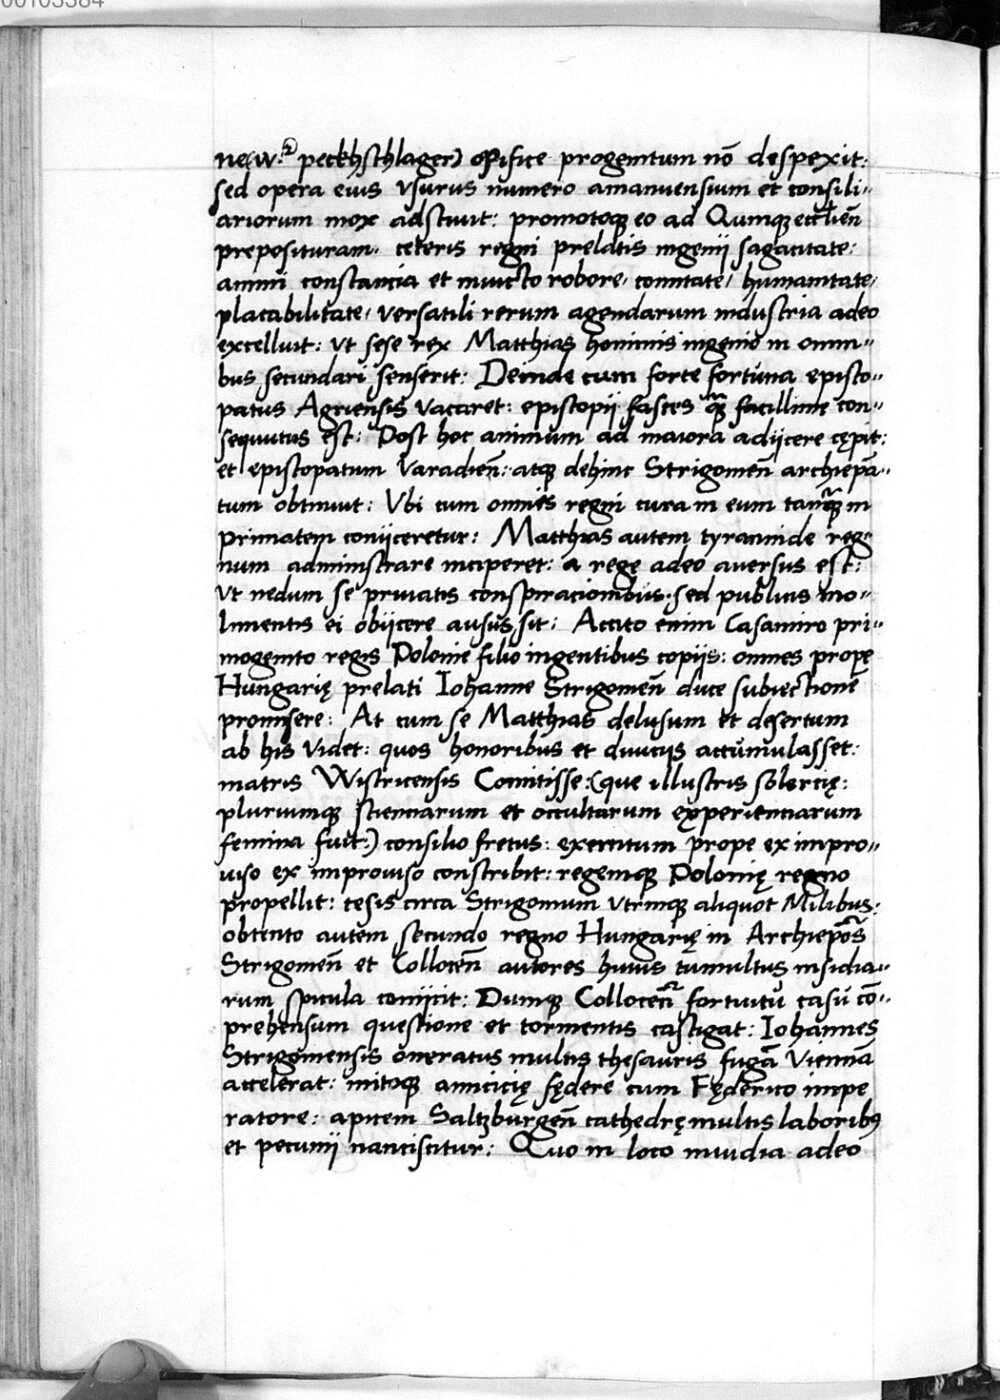 00103384
new.r peckhschlager) opifice progenitum nō despexit:
sed opera eius vsurus numero amanuensium et consili„
ariorum mox adsciuit: promotoqȝ eo ad Quinqȝ eccl̄ień
preposituram. ceteris regni prelatis ingenij sagacitate:
animi constancia et inuicto robore, comitate, humanitate,
placabilitate, versatili rerum agendarum industria adeo
excelluit: vt sese rex Matthias hominis ingenio in omni„
bus secundari senserit: Deinde cum forte fortuna episco„
patus Agriensis vacaret: episcopij fasces qȝ facillime con„
sequutus est: Post hoc animum ad maiora adijcere cępit:
et episcopatum Varadień: atqȝ dehinc Strigomeń archiepā„
tum obtinuit: Vbi cum omnis regni cura in eum tanqȝ in
primatem conijceretur: Matthias autem tyrannide reg„
num administrare inciperet: a rege adeo auersus est:
vt nedum se priuatis conspiracionibus. sed publicis mo„
limentis ei obijcere ausus sit: Accito enim Casamiro pri„
mogenito regis Polonie filio ingentibus copijs: omnes prope
Hungarię prelati Iohanne Strigomeń duce subiectione
promisere: At cum se Matthias delusum et desertum
ab his videt: quos honoribus et diuicijs accumulasset:
matris Wistricensis Comitisse: (que illustris solercię:
pluriumqȝ scienciarum et occultarum experienciarum
femina fuit:) consilio fretus: exercitum prope ex impro„
uiso ex improuiso conscribit: regemqȝ Polonię regno
propellit: cesis circa Strigonium vtrinqȝ aliquot Milibus:
obtento autem secundo regno Hungarię in Archiepōs
Strigomeń et Colloceń autores huius tumultus insidia„
rum spicula coniicit: Dumqȝ Colloceń fortuitu casu cō„
prehensum questione et tormentis castigat: Iohannes
Strigomensis oneratus multis thesauris fugā Viennā
accelerat: initoqȝ amicicię fędere cum Fęderico impe
ratore: apicem Saltzburgeń cathedrę multis laboribꝰ
et pecunij nanciscitur: Quo in loco inuidia adeo